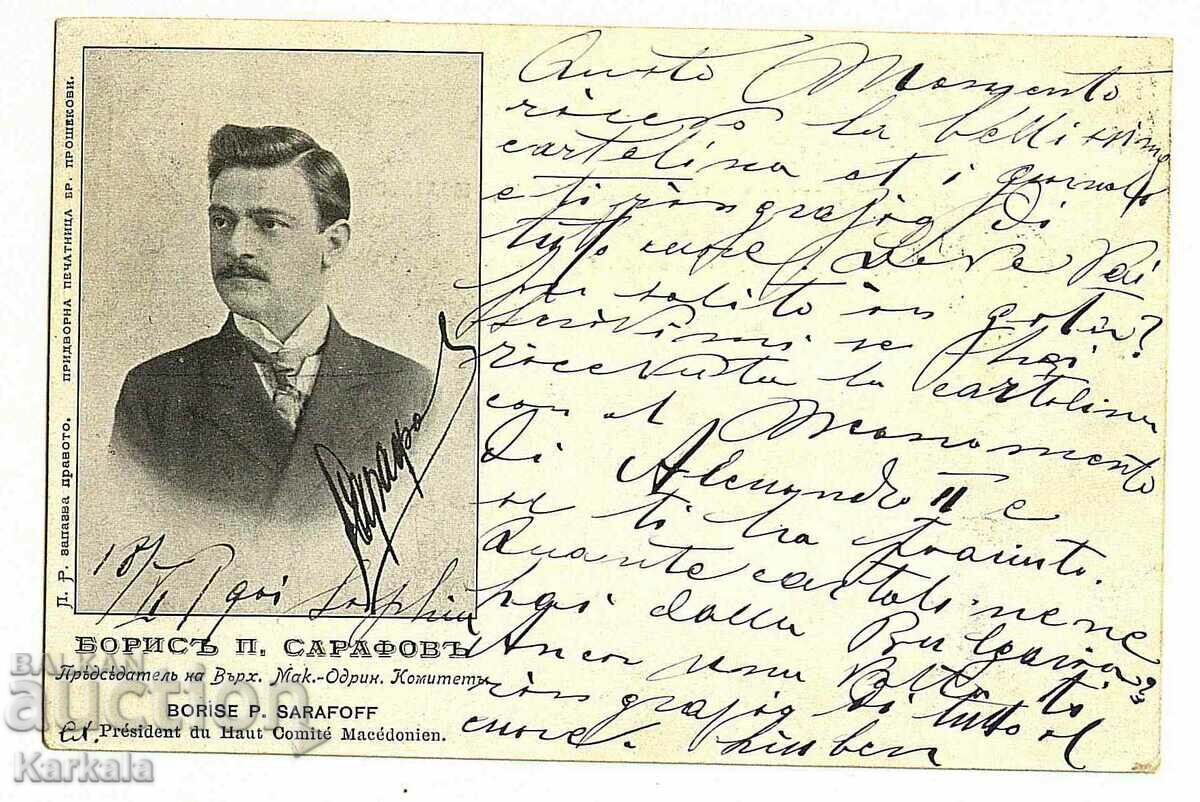 Д. Р. запазва правото. ПРИДВОРНА ПЕЧАТНИЦА БР. ПРОШЕКОВИ.
18/VI 1901 Sophia
БОРИСЪ П. САРАФОВЪ
Прѣдсѣдатель на Върх. Мак.-Одрин. Комитетъ
BORISE P. SARAFOFF
Président du Haut Comité Macédonien.
Questo Momento
ricevo la bellissima
cartolina et i giornali
e ti ringrazio di
tutto cuore. Deve Voi
solito in
Scrivimi se hai
ricevuta la cartolina
con el Monomento
di Alessandro II e
se ti ha
Quante cartoline ne
hai dalla Bulgaria?
Ancor una volta ti
ringrazio di tutto el
cuore. Liuben
BALKAN
auction
Karkala